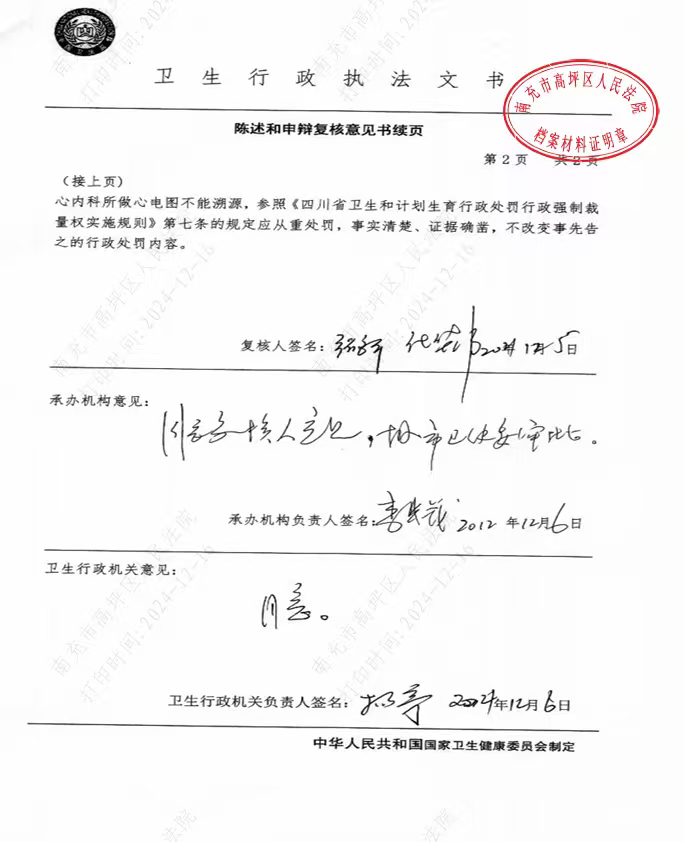 卫生行政执法文书
南充市高坪区人民法院
档案材料证明章
陈述和申辩复核意见书续页
第 2 页 共 2 页
(接上页)
心内科所做心电图不能溯源，参照《四川省卫生和计划生育行政处罚行政强制裁
量权实施规则》第七条的规定应从重处罚，事实清楚、证据确凿，不改变事先告
之的行政处罚内容。
复核人签名：
承办机构意见：
同意复核人意见，
承办机构负责人签名： 2012 年12月6日
卫生行政机关意见：
同意。
卫生行政机关负责人签名： 年12月6日
中华人民共和国国家卫生健康委员会制定
南充市高坪区人民法院
打印时间：2024-12-16